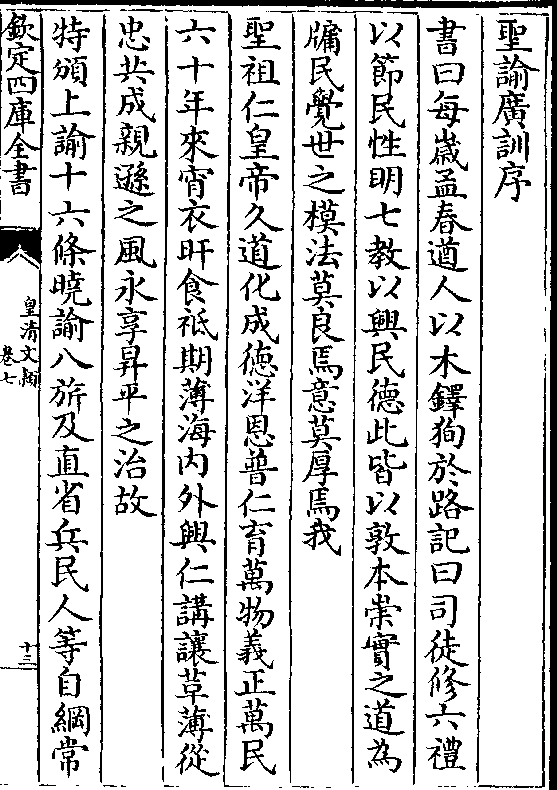 聖諭廣訓序
書曰每歲孟春遒人以木鐸狥於路記曰司徒修六禮
以節民性明七教以興民德此皆以敦本崇實之道為
牖民覺世之模法莫良焉意莫厚焉我
聖祖仁皇帝久道化成德洋恩普仁育萬物義正萬民
六十年來宵衣旰食祗期薄海內外興仁講讓革薄從
忠共成親遜之風永享昇平之治故
特頒上諭十六條曉諭八旂及直省兵民人等自綱常
欽定四庫全書
皇清文頴
卷七
十三